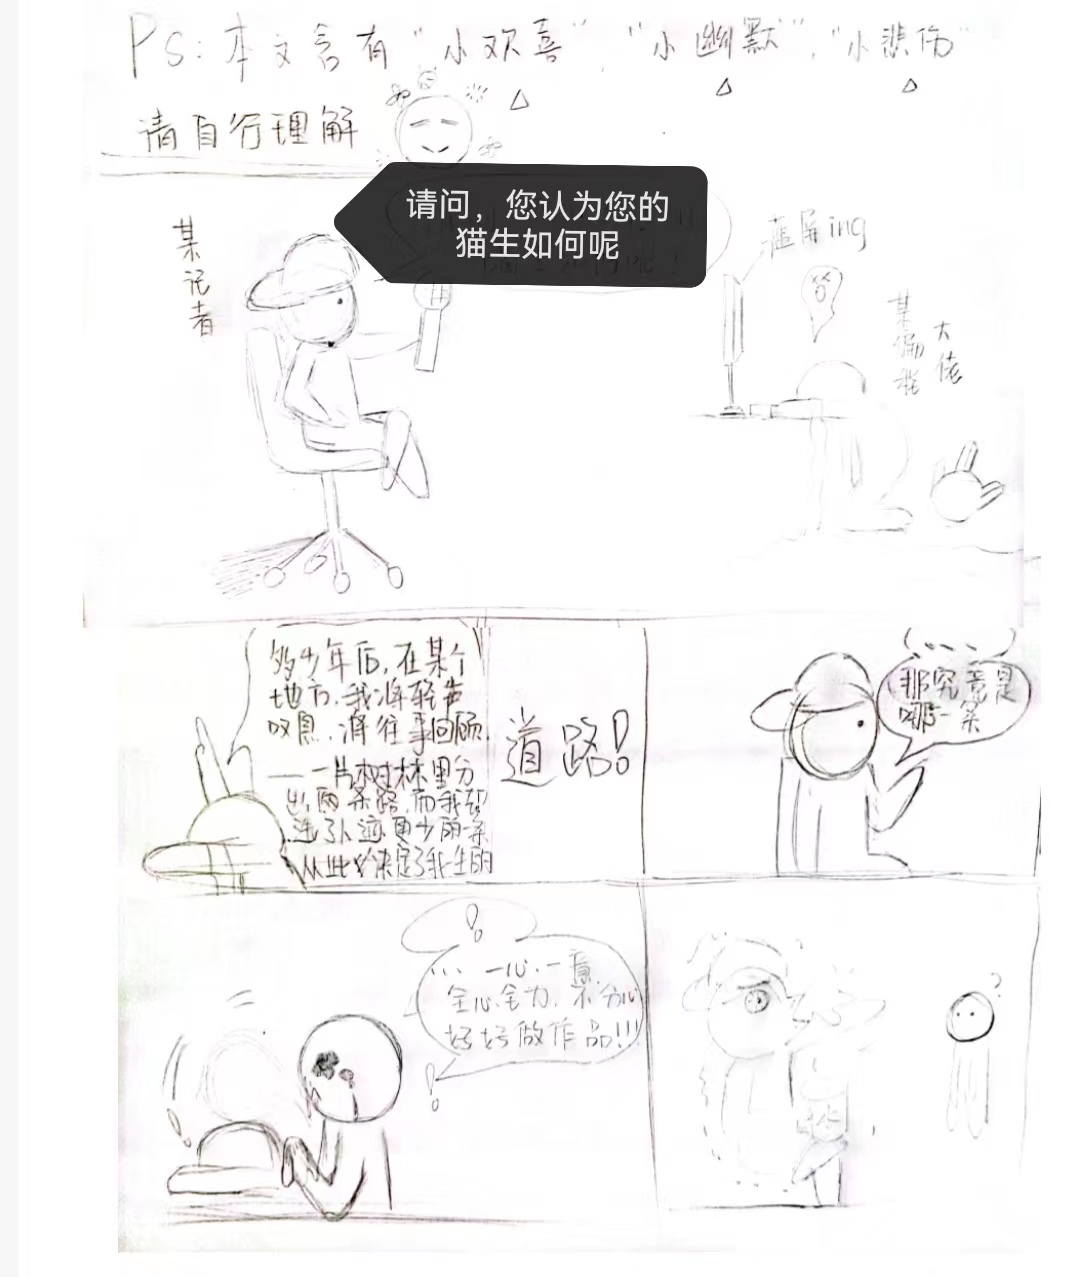 Ps:本文含有"小欢喜","小幽默","小悲伤"
请自行理解
请问，您认为您的
猫生如何呢
某记者
蓝屏ing
某
大佬
多少年后,在某个
地方,我将轻声
叹息,将往事回顾.
——一片树林里分
出两条路,而我却
选了人迹更少的一条
从此决定了我一生的
道路!
....
那究竟是
哪一条
!
...一心一意,
全心全力,不分心
好好做作品!!!
!
?